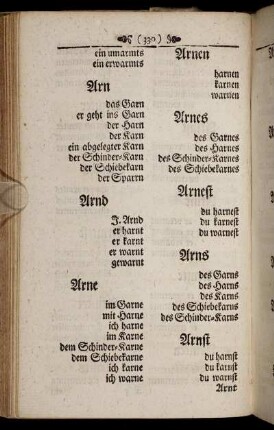 ( 330 )
ein umarmts
ein erwarmts
Arn
das Garn
er geht ins Garn
der Harn
der Karn
ein abgelegter Karn
der Schinder-Karn
der Schiebekarn
der Sparrn
Arnd
J. Arnd
er harnt
er karnt
er warnt
gewarnt
Arne
im Garne
mit Harne
ich harne
im Karne
dem Schinder-Karne
dem Schiebekarne
ich karne
ich warne
Arnen
harnen
karnen
warnen
Arnes
des Garnes
des Harnes
des Schinder-Karnes
des Schiebekarnes
Arnest
du harnest
du karnest
du warnest
Arns
des Garns
des Harns
des Karns
des Schiebekarns
des Schinder-Karns
Arnst
du harnst
du karnst
du warnst
Arnt